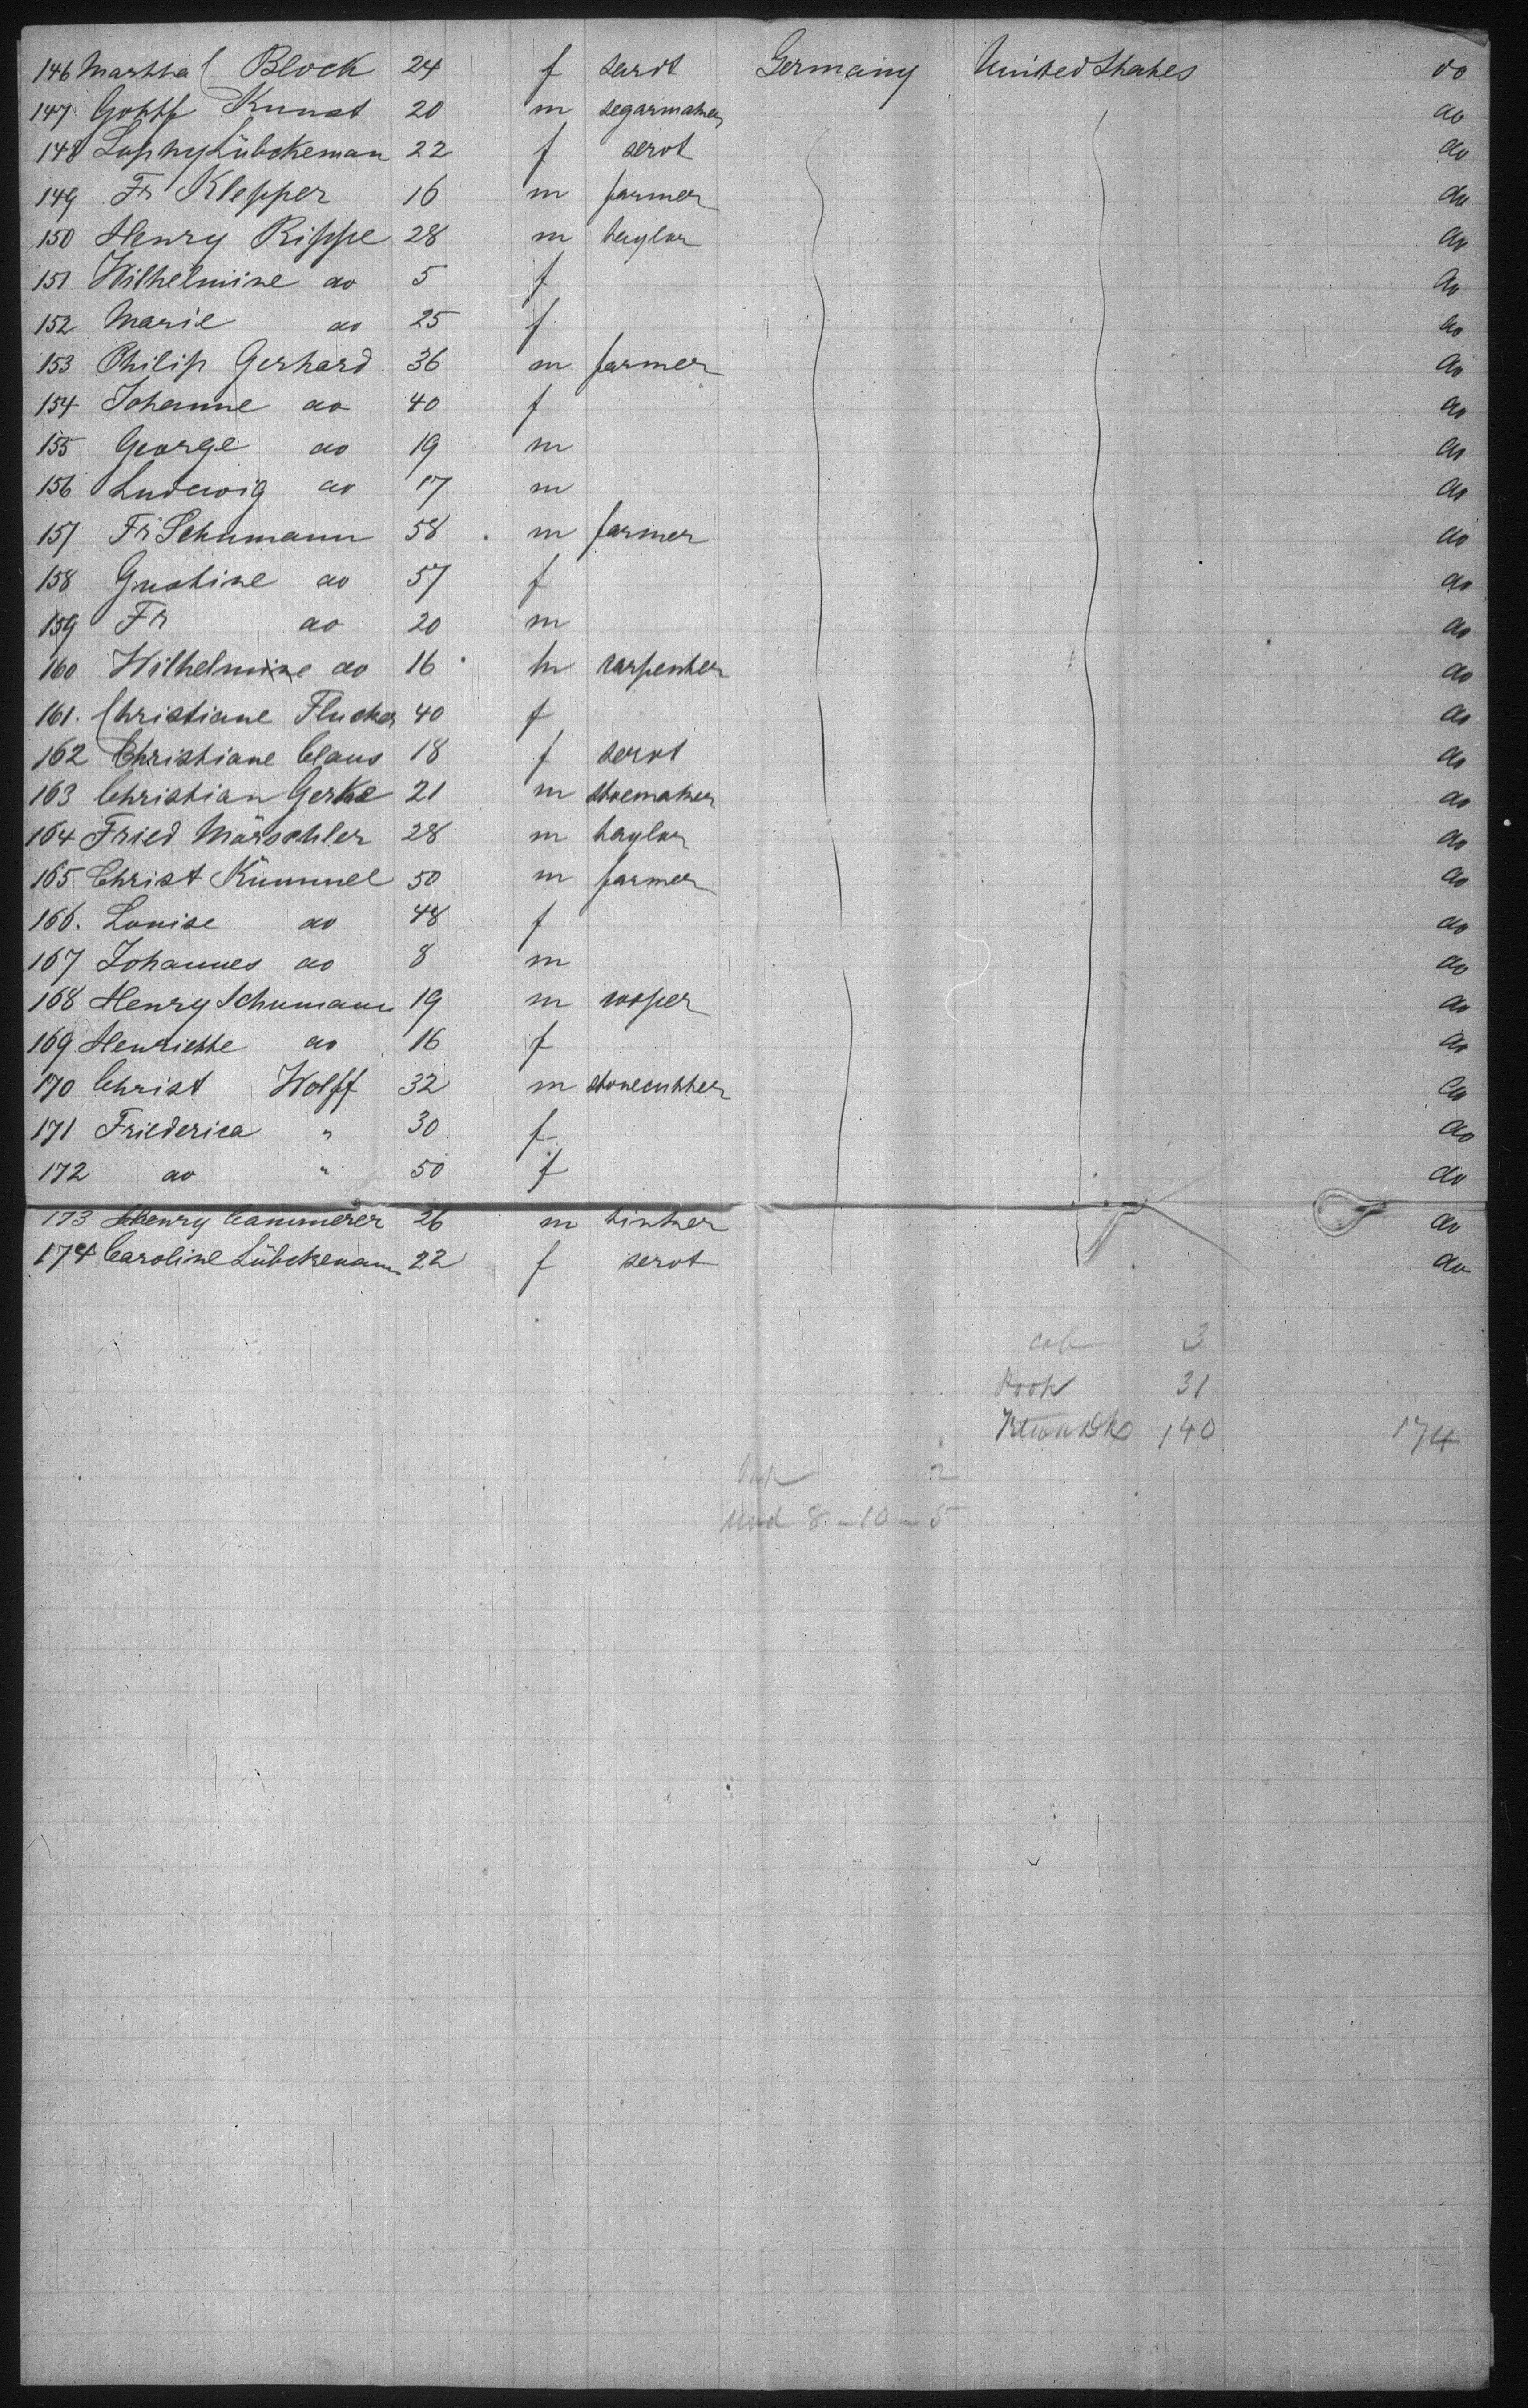 146 Martha Block 24 f servt Germany United States do
147 Gottf Kunst 20 m segarmaker do
148 Sophy Lübckeman 22 f servt do
149 Fr Klepper 16 m farmer do
150 Henry Rippe 28 m taylor do
151 Wilhelmine do 5 f do
152 Marie do 25 f do
153 Philip Gerhard 36 m farmer do
154 Johanne do 40 f do
155 George do 19 m do
156 Ludewig do 17 m do
157 Fr Schumann 58 m farmer do
158 Gustine do 57 f do
159 Fr do 20 m do
160 Wilhelm do 16 m carpenter do
161. Christiane Flucker 40 f do
162 Christiane Claus 18 f servt do
163 Christian Gerke 21 m shoemaker do
164 Fried Märschler 28 m taylor do
165 Christ Kümmel 50 m farmer do
166. Louise do 48 f do
167 Johannes do 8 m do
168 Henry Schumann 19 m cooper do
169 Henriette do 16 f do
170 Christ Wolff 32 m stonecutter do
171 Friederica " 30 f do
172 do " 50 f do
173 Henry Cammerer 26 m tinker do
174 Caroline Lübckemann 22 f servt do
cab 3
31
140 174
2
und 8 - 10 - 5